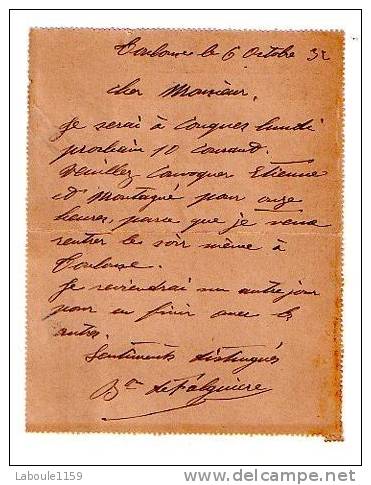 Toulouse le 6 Octobre 32
Cher Monsieur,
Je serai à Conques lundi
prochain 10 Courant.
Veuillez Convoquer Etienne
et Montagné pour onze
heures, parce que je veux
rentrer le soir même à
Toulouse.
Je reviendrai un autre jour
pour en finir avec les
autres.
Sentiments distingués
Bon de Falguière
Laboule1159
delcampe.net